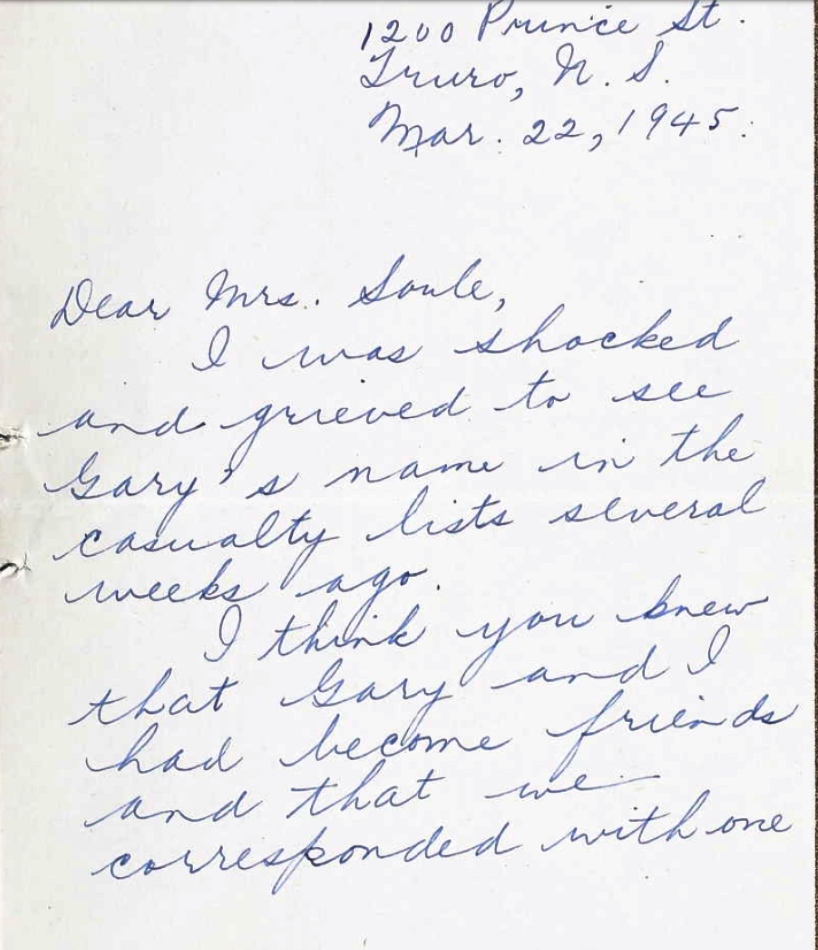 1200 Prince St.
Truro, N. S.
Mar. 22, 1945.
Dear Mrs. Soule,
I was shocked
and grieved to see
Gary's name in the
casualty lists several
weeks ago.
I think you knew
that Gary and I
had become friends
and that we
corresponded with one